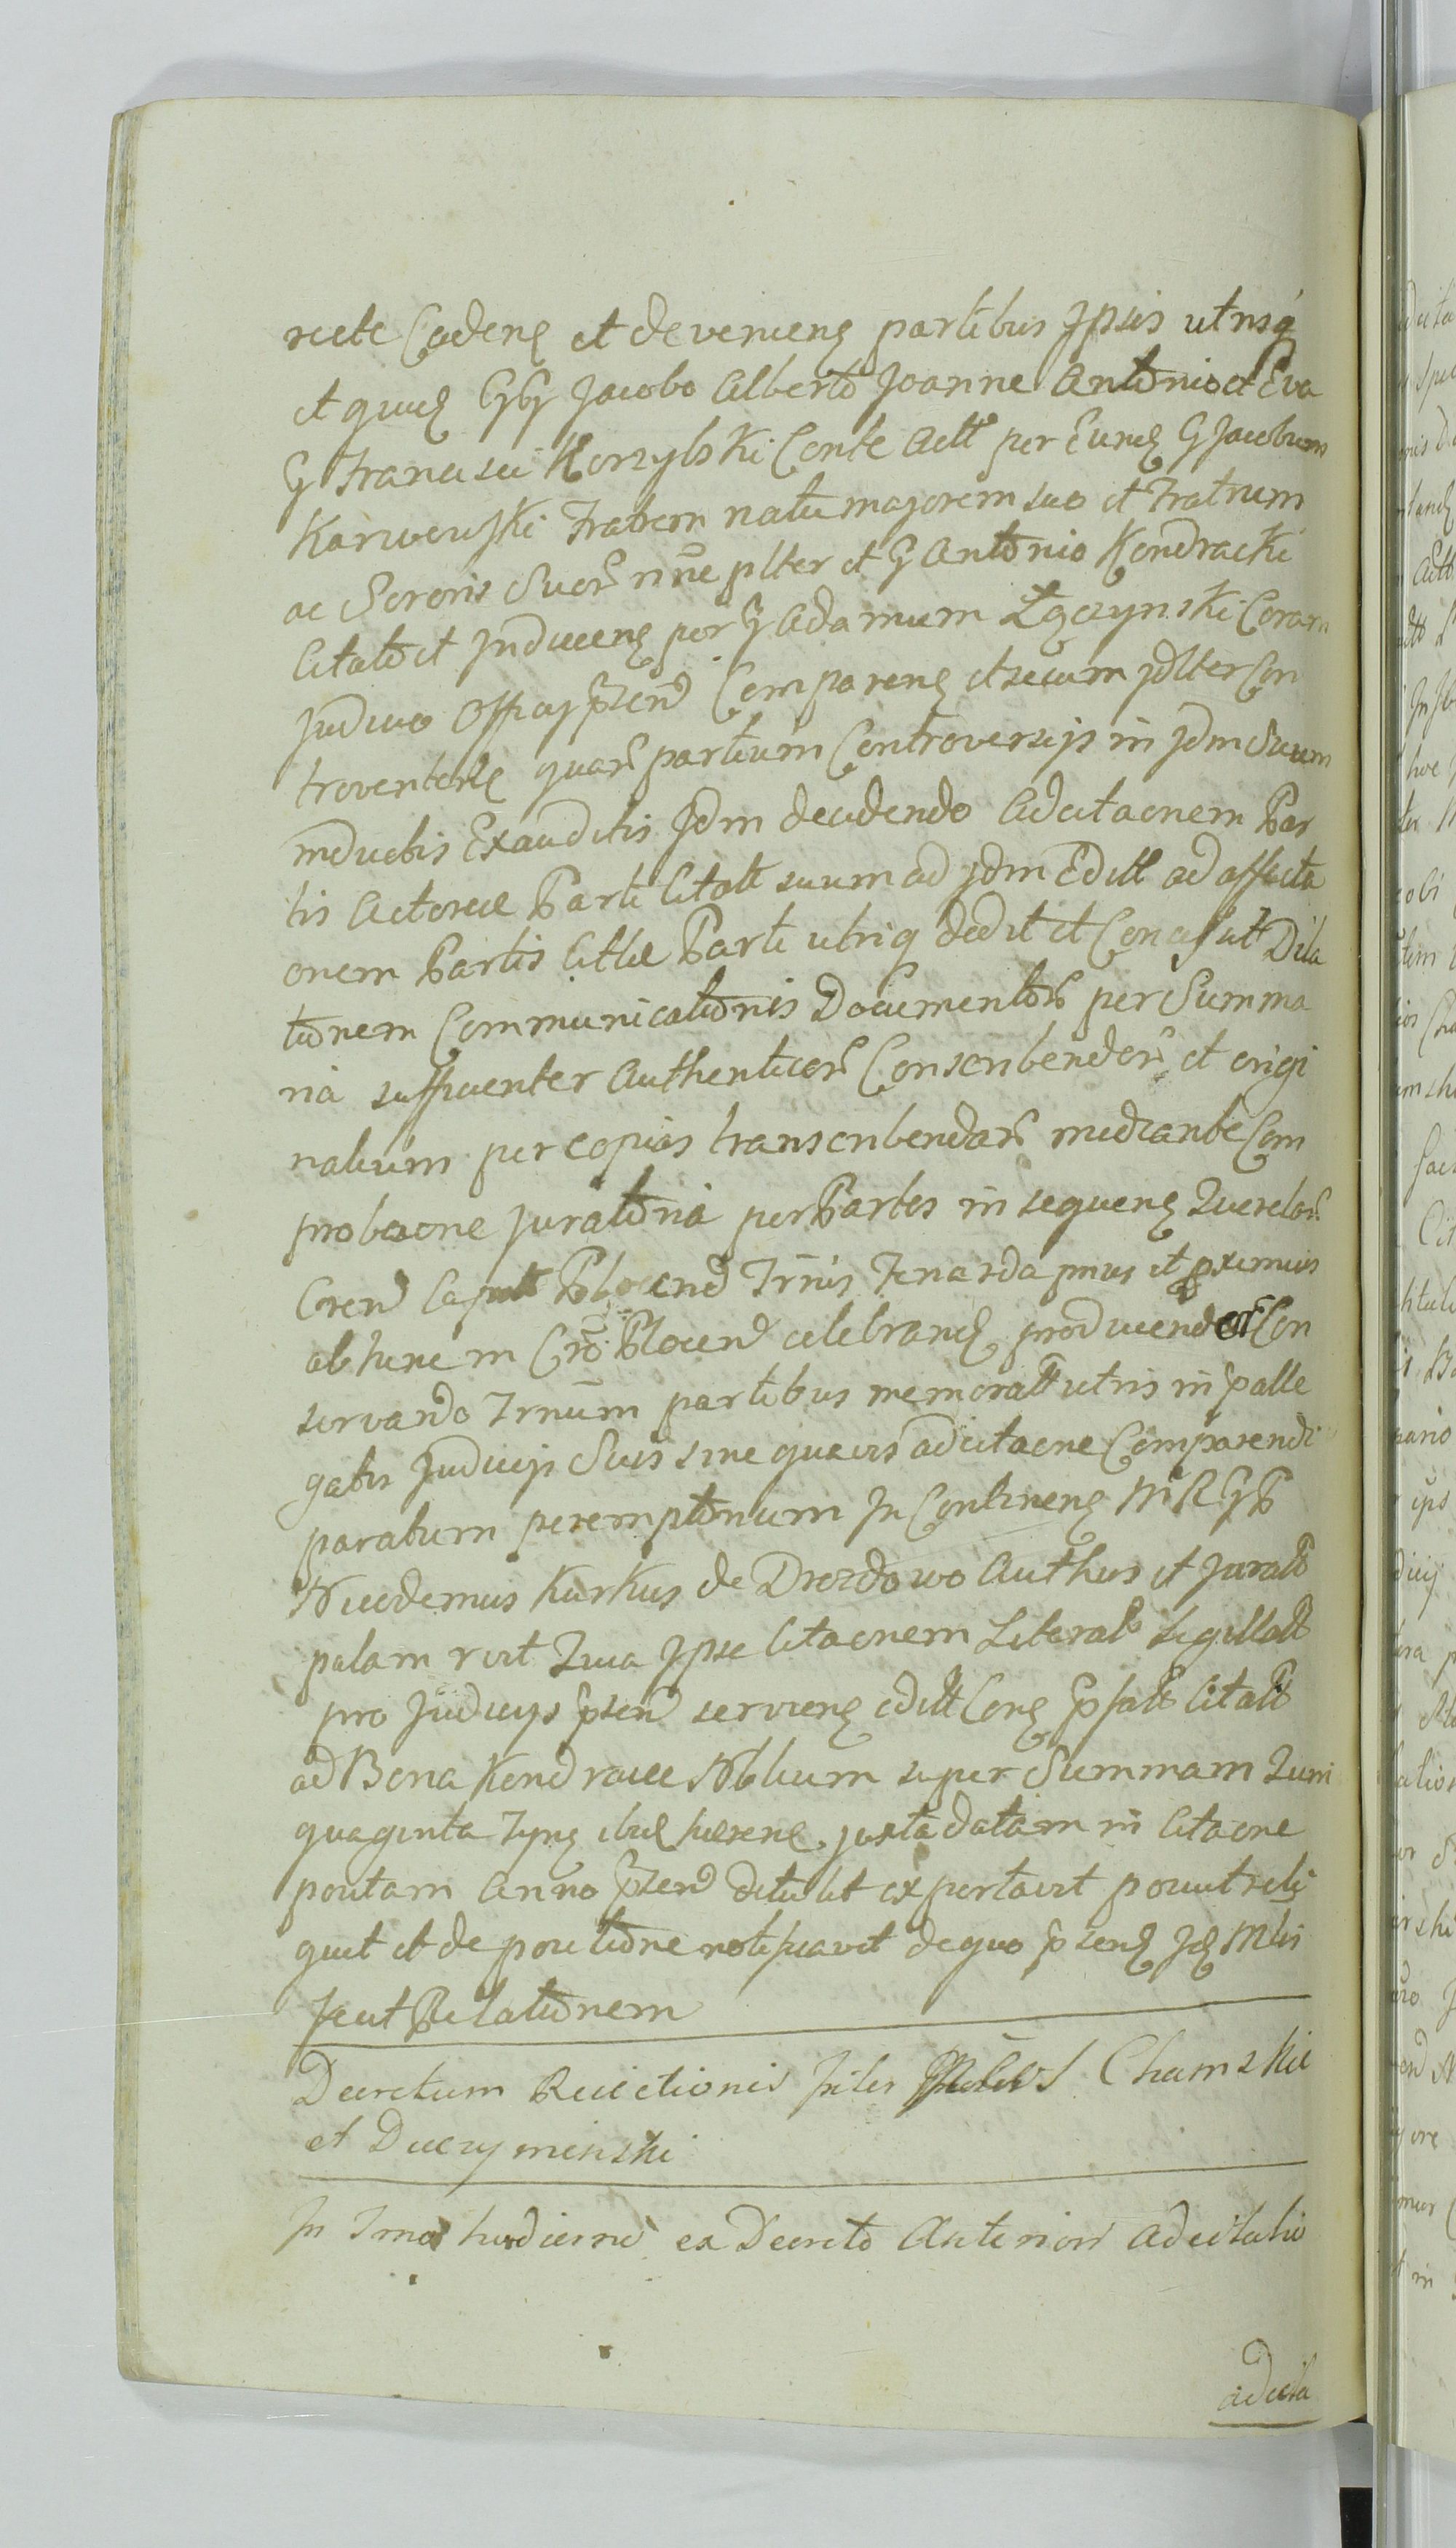 recte Caden et devenien partibus Ipsis utrisq
et quid GG Jacobo Alberto Joanne Antonio et Eva
G Francisci Korzybski Conte Actt per Eund G Jacobum
Karwowski Fratrem natu majorem suo et Fratrum
ac Sororis Suor nne plter et G Antonio Kondracki
Citato et Inducen per G Adamum Łączynski Coram
Judicio Officij pnsen Comparen et secum jdlter Con
troverten quar partium Controversijs in jdm Suum
inductis Exauditis Jdm decidendo Adcitaonem Par
tis Actorue Parti Citatt suum ad jdm Editt ad affecta
onem Partis Cittae Parti utriq dedit et Concessit Dila
tionem Communicationis Documentor per Summa
ria sufficienter Authenticor Conscribendor et origi
nalium per copias transcribendar mediante Com
probaone juratoria per Partes in sequen Querelar
Coren Capitt Plocen Trnis Feria 3da prius et proximius
abhinc in Cro Plocen celebrand producendor Con
servando Trnum partibus memoratt utris in palle
gatis Judicijs Suis sine quavis adcitaone Comparendi
paratum peremptorium In Continen MRGP
Nicodemus Kurkus de Drozdowo Authus et Juratt
palam rvit Quia Ipse Citaonem Literal Sigillatt
pro Judicijs pnsen servien editt Con pfatt Citatt
ad Bona Kondracee Nblium super Summam Quin
quaginta Tyn ibid haeren juxta datam in Citaone
positam Anno pnsen detulit exportavit posuit reli
quit et de positione notificavit de quo pnsen Jd Mlis
fecit Relationem
Decretum Reiectionis Inter Chamskie
et Duczyminski
In Trno hodierno ex Decreto Anteriori Adcitatio
adcita